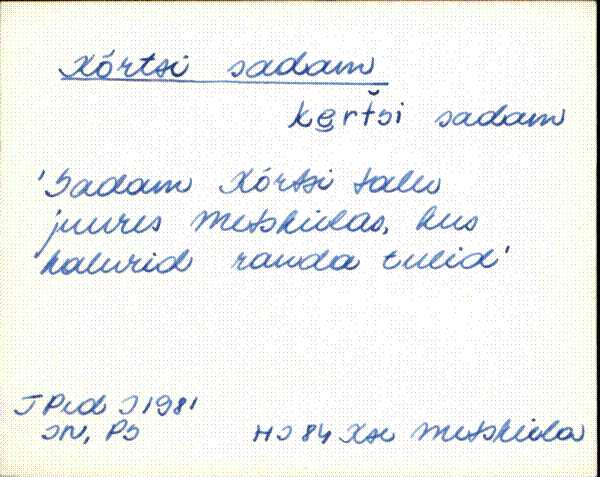 Kõrtsi sadam
kẹrt̆si sadam
'Sadam Kõrtsi talu
juures Metskülas, kus
kalurid randa tulid'
HJ 84 Kse Metsküla